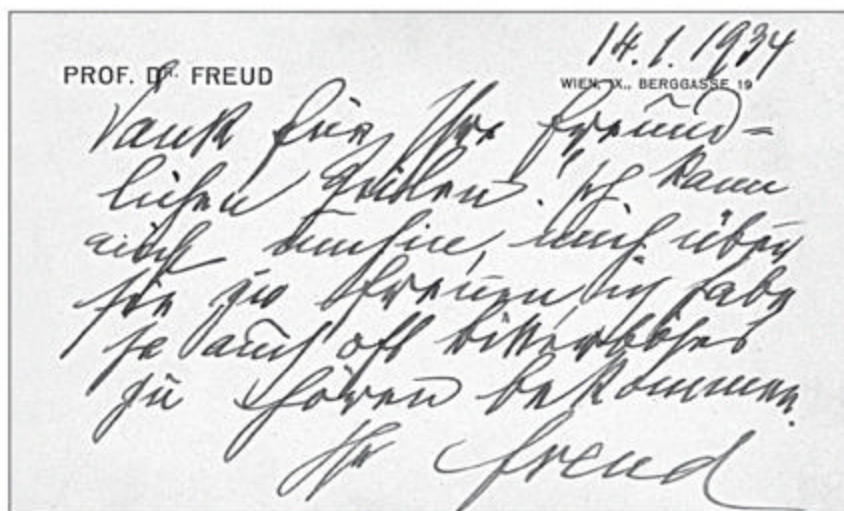 14.1.1934
PROF. DR. FREUD
WIEN, IX., BERGGASSE 19
Dank für Ihre freund=
lichen Zeilen. Ich kann
nicht umhin, mich über
sie zu freuen ich habe
ja auch oft bitterböses
zu hören bekommen.
Ihr Freud